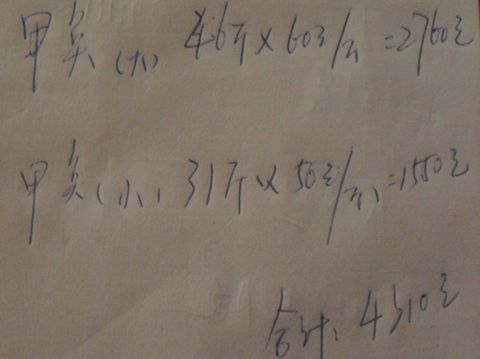 甲鱼(大) 46斤×60元/斤=2760元
甲鱼(小) 31斤×50元/斤=1550元
合计:4310元